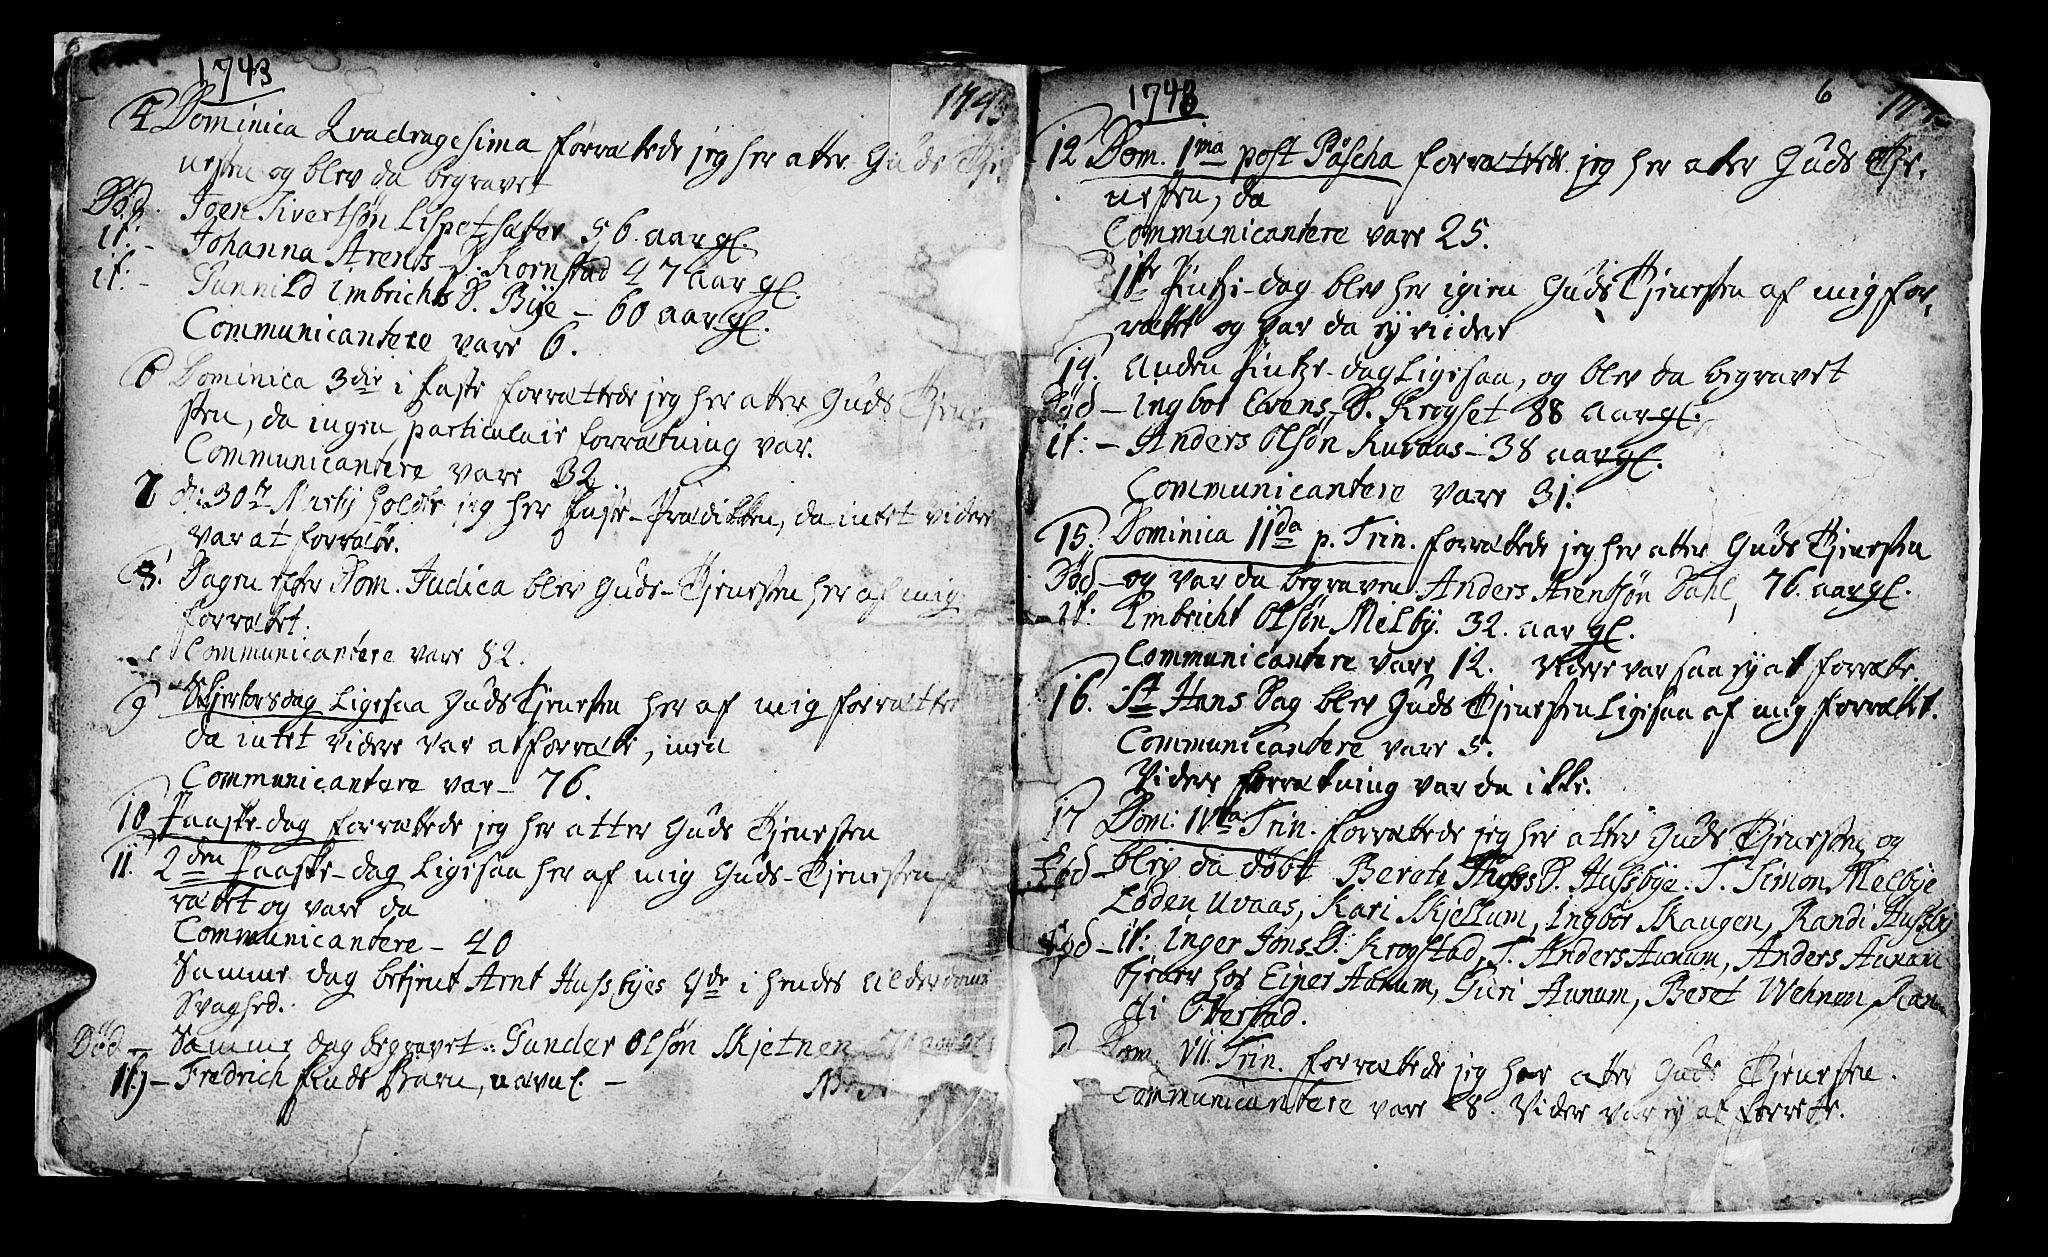 1743
1743
4 Dominica Qvadragesima forrættede jeg her atter Guds Tje-
nesten og blev da begravet
Død. Joen Sivertsøn Lispetsæter 56. aar gl.
it: - Johanna Arents D. Kornstad 47 aar gl.
it: - Gunnild Imbrichts D. Bye - 60 aar gl.
Communicantere vare 6.
6 Dominica 3die i Faste forrættede jeg her atter Guds Tjene-
sten, da ingen particulair forrætning var.
Communicantere vare 32.
7 d: 30te Martij holdte jeg her Faste-Prædikken, da intet videre
var at forrætte.
8. Dagen efter Dom. Judica blev Guds-Tjenesten her af mig
forrættet.
Communicantere vare 82.
9 Skjertorsdag Ligesaa Guds Tjenesten her af mig forrættet
da intet videre var at forrætte, men
Communicantere var - 76.
10 Paaske-dag forrættede jeg her atter Guds Tjenesten
11. 2den Paaske-dag Ligesaa her af mig Guds-Tjenesten
rættet og vare da
Communicantere - 40
Samme dag betjent Arnt Hussbyes i hendes Alderdoms
Svaghed.
Død - Samme dag begravet: Gunder Olsøn Skjetnen 71 aar gl.
it: - Fredrich Barn, navnl. -
1743
6
12 Dom. 1ma post Pascha forrættede jeg her atter Guds Tje-
nesten, da
Communicantere vare 25.
1ste Pintze-dag blev her igien Guds Tjenesten af mig for-
rættet og var da ey videre
14. Anden Pintze-dag Ligesaa, og blev da begravet
Død - Ingbor Evens D. Krogset 88 aar gl.
it: - Anders Olsøn Kuraas - 38 aar gl.
Communicantere vare 31:
15. Dominica IIda p. Trin. forrættede jeg her atter Guds Tjenesten
Død - og var da begraven Anders Arentsøn Dahl, 76. aar gl.
it: Imbricht Olsøn Melby. 32. aar gl.
Communicantere vare 12. videre var saa ey at forrætte.
16. St Hans Dag blev Guds Tjenesten Ligesaa af mig forrættet.
Communicantere vare 5.
Videre forrætning var da ikke.
17 Dom: IVta Trin. forrættede jeg her atter Guds Tjenesten og
Fød - blev da døbt Berati D. Hussbye. T. Simon Melbye
Loden Uvaas, Kari Skjellum, Ingbor Skaugen, Randi Hussby
Fød - it: Inger Jons D. Krogstad, T. Anders Aunum, Anders Aunum
tjener hos Ejner Aunum, Guri Aunum, Beret Wehnen, Ran-
di Otterstad.
Dom. VII. Trin. forrættede jeg her atter Guds Tjenesten.
Communicantere vare 8. Videre var ey at forrette.